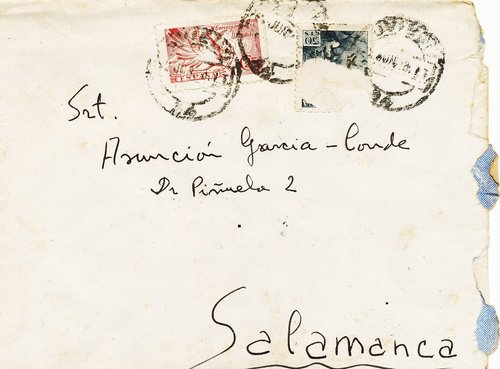 Srt.
Asunción Garcia-Conde
Dr Piñuela 2
Salamanca